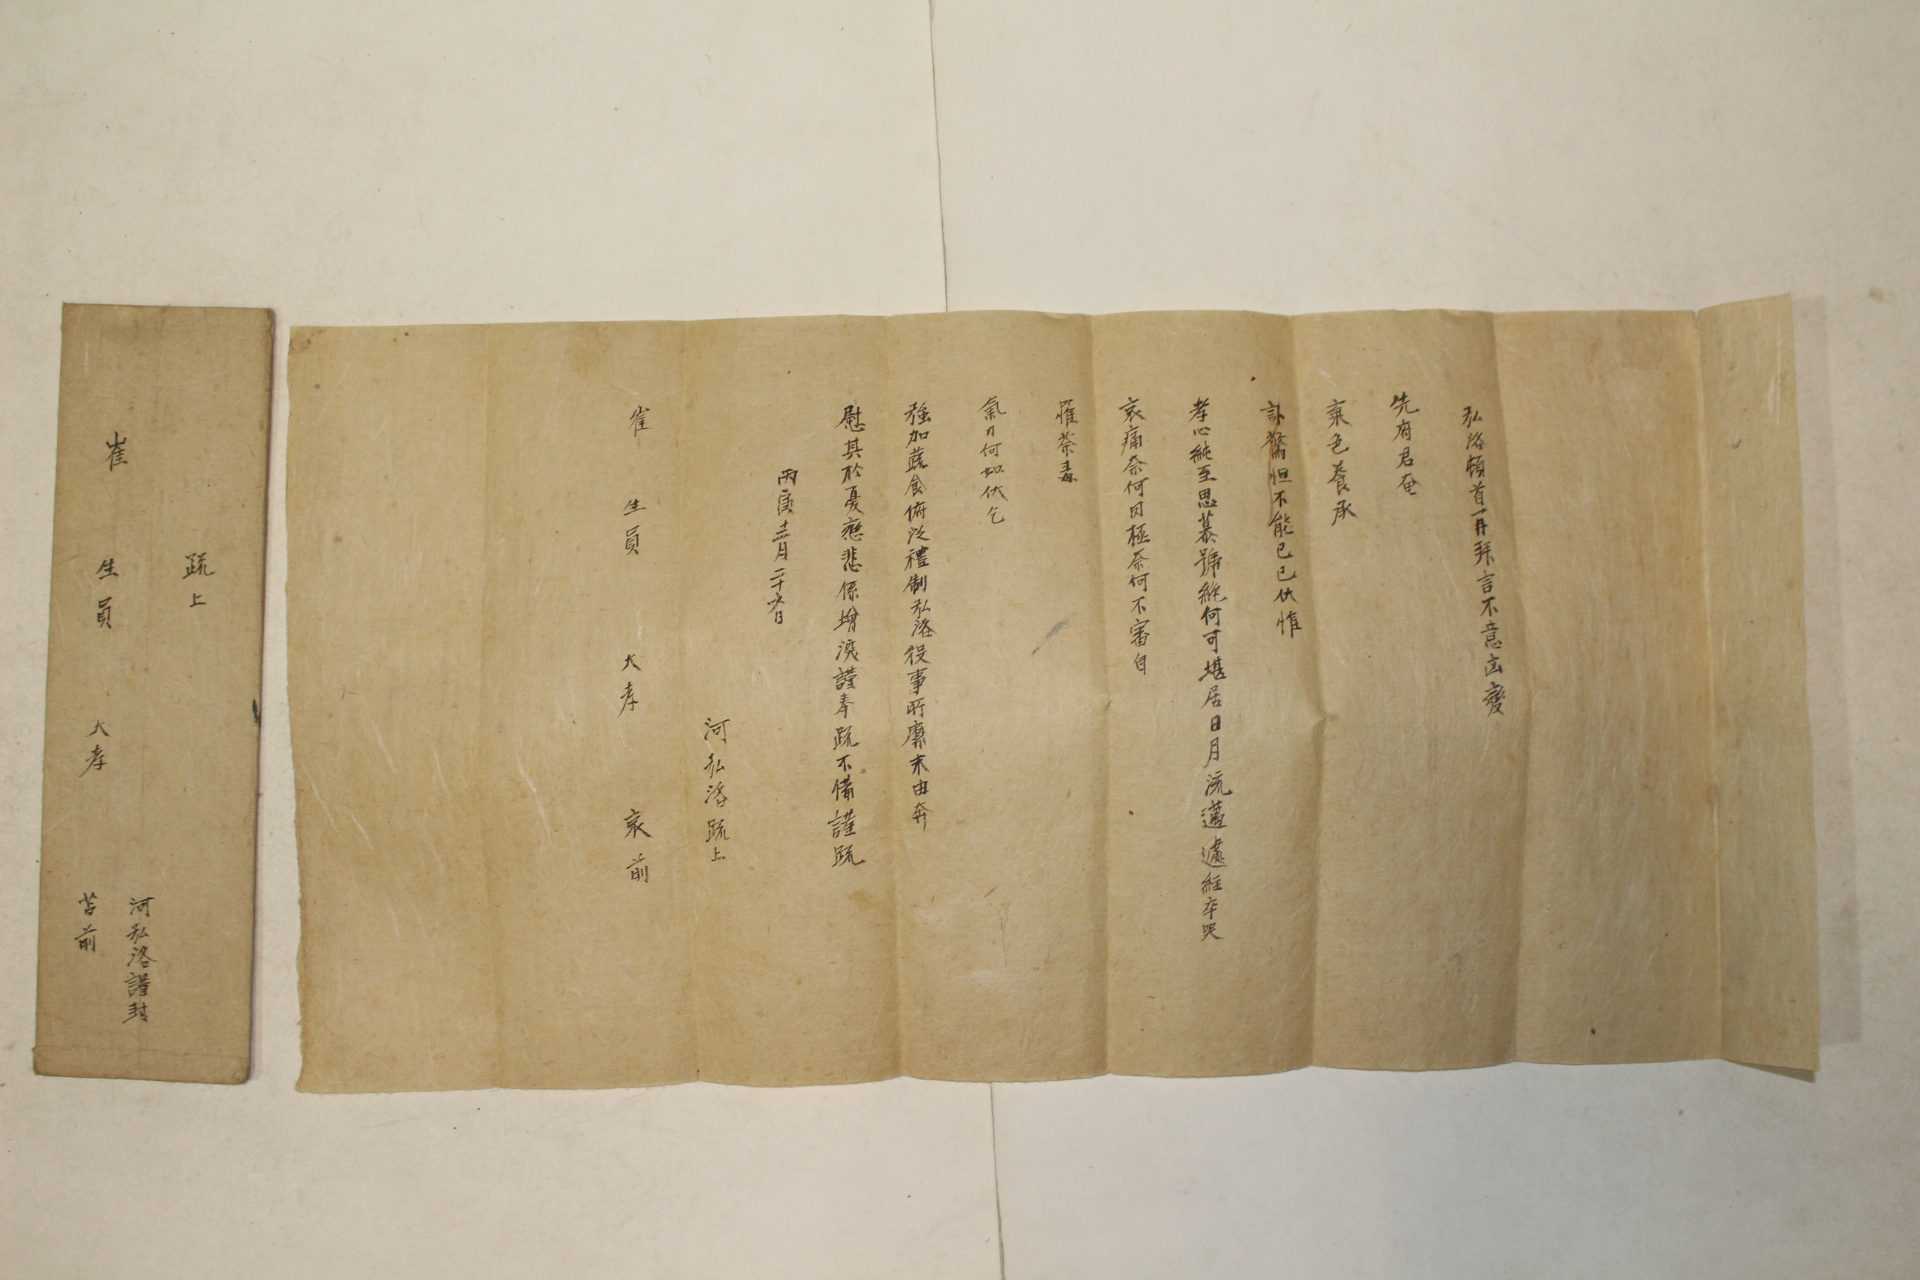 弘洛頓首再拜言不意凶變
先府君奄
棄色養承
訃驚怛不能已已伏惟
孝心純至思慕號絶何可堪居日月流邁遽經卒哭
哀痛奈何罔極奈何不審自
罹荼毒
氣力何如伏乞
強加蔬食俯從禮制弘洛役事所縻末由奔
慰其於憂戀悲係增深謹奉疏不備謹疏
丙寅十二月二十六日
河弘洛疏上
崔 生員 大孝 哀前
疏上
河弘洛謹封
崔 生員 大孝 苫前